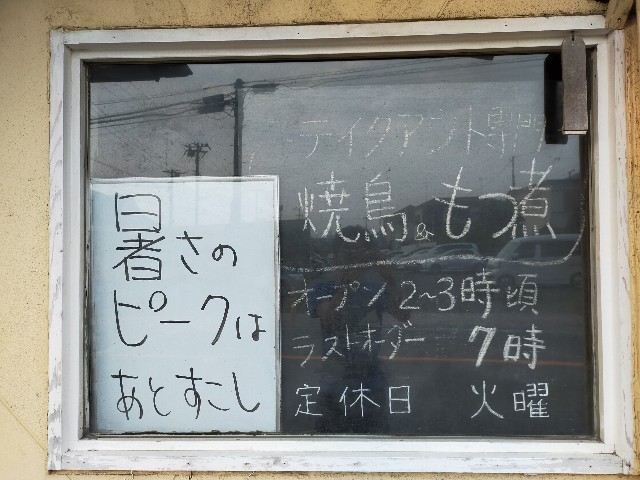 テイクアント専門
焼鳥&もつ煮
オープン 2~3時頃
ラストオーダー 7時
定休日 火曜
暑さの
ピークは
あとすこし